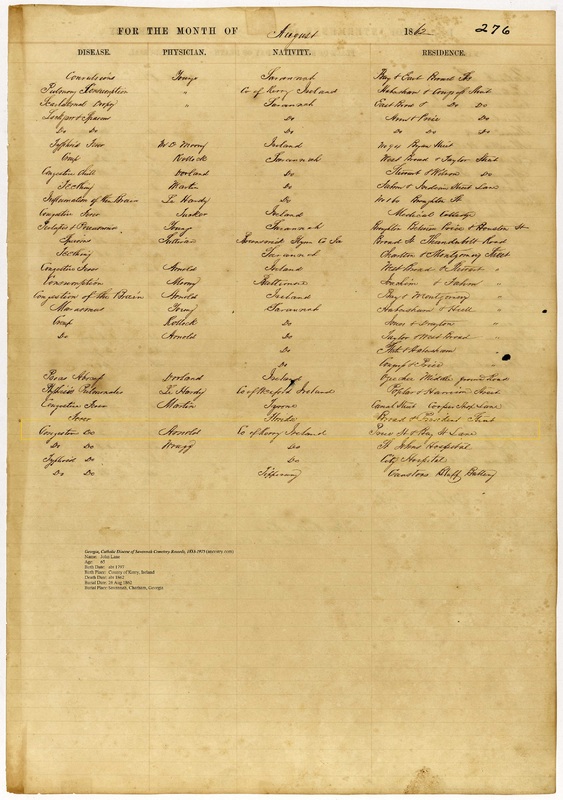 FOR THE MONTH OF August 1862 276
DISEASE. PHYSICIAN. NATIVITY. RESIDENCE.
Convulsions Savannah Bay & East Broad Sts
Pulmonary Consumption " Co of Kerry Ireland Habersham & Congress Street
Scarlatinal Dropsy " Savannah East Broad Do Do
Lockjaw & Spasms Do & Price Do
Do Do Do Do Do Do
Typhoid Fever Ireland No 94 Bryan Street
Croup Kollock Savannah West Broad & Taylor Street
Congestive Chill Dorland Do Stewart & Wilson Do
Teething Martin Do Fahm & Indian Street Lane
Inflammation of the Brain Le Hardy Do Houghton St
Congestive Fever Tucker Ireland Medical College
Savannah Between Price & Houston St
Spasms Sullivan Brunswick Glynn Co Ga Broad St Thunderbolt Road
Teething Savannah Charlton & Montgomery Street
Congestive Fever Arnold Ireland West Broad & Stewart "
Consumption Baltimore & Fahm "
Congestion of the Brain Arnold Ireland Bay & Montgomery "
Marasmus Savannah Habersham & Hull "
Croup Kollock Do Jones & Drayton "
Do Arnold Do Taylor & West Broad "
Do State & Habersham "
Do & Price "
Dorland Ireland Ogeechee Middle ground Road
Phthisis Pulmonalis Le Hardy Co of Wexford Ireland Poplar & Harrison Street
Congestive Fever Martin Tyrone Canal Street Cooper Shop Lane
Fever Florida Broad & President Street
Congestive Do Arnold Co of Kerry Ireland St & Bay St Lane
Do Do Wragg Do St Johns Hospital
Typhoid Do Do City Hospital
Do Do Tipperary Caustons Bluff Battery
Georgia, Catholic Diocese of Savannah Cemetery Records, 1853-1975 (ancestry.com)
Name: John Lane
Age: 65
Birth Date: abt 1797
Birth Place: County of Kerry, Ireland
Death Date: abt 1862
Burial Date: 28 Aug 1862
Burial Place: Savannah, Chatham, Georgia